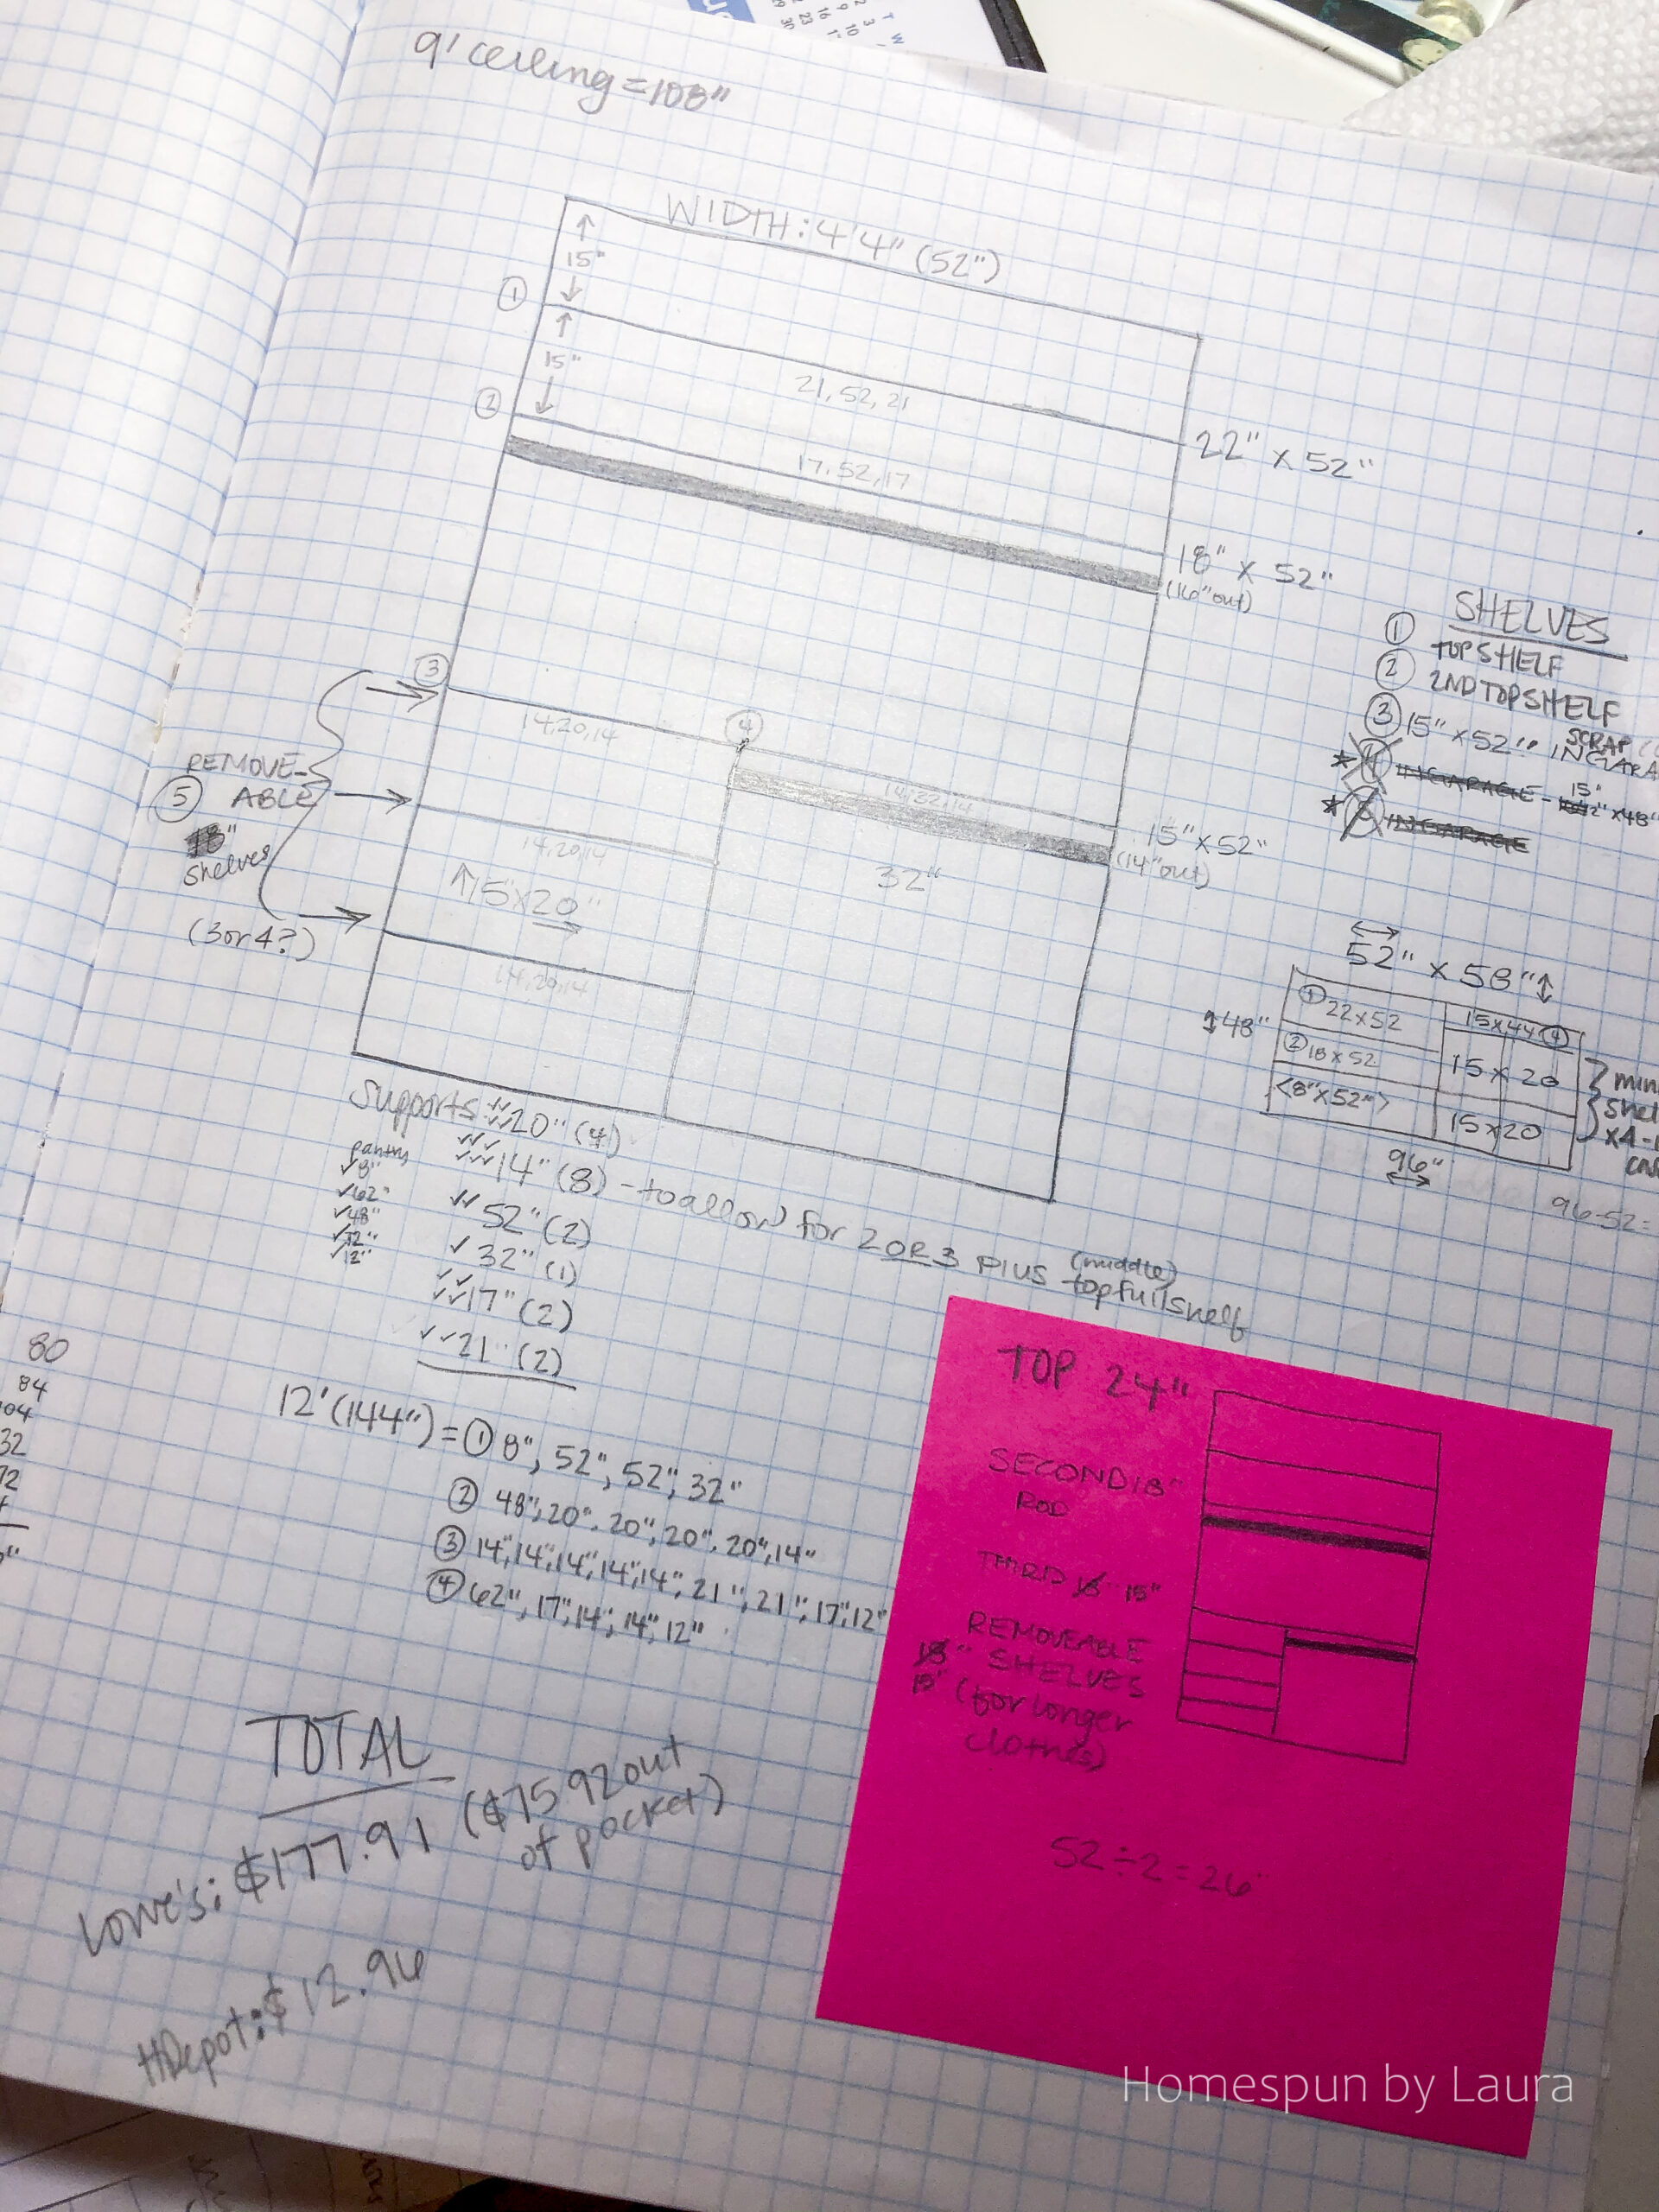 9' ceiling = 108"
WIDTH: 4'4" (52")
15"
①
15"
21, 52, 21
②
22" x 52"
17, 52, 17
18" x 52"
(16" out)
③
14, 20, 14
④
14, 32, 14
15" x 52"
(14" out)
REMOVE-
⑤ ABLE
shelves
(3 or 4?)
14, 20, 14
15 x 20"
32"
14, 20, 14
SHELVES
① TOP SHELF
② 2ND TOP SHELF
③ 15" x 52"
SCRAP
* IN GARAGE - 15" x 48"
* IN GARAGE
52" x 58"
48"
① 22 x 52
15 x 44 ④
② 18 x 52
15 x 20
<8" x 52">
15 x 20
96"
96-52=
Supports:
20" (4)
14" (8) - to allow for 2 OR 3 PLUS (middle) top full shelf
52" (2)
32" (1)
17" (2)
21" (2)
pantry
8"
62"
48"
12"
12"
80
84
32
12' (144") = ① 8", 52", 52", 32"
② 48", 20", 20", 20", 20", 14"
③ 14", 14", 14", 14", 14", 21", 21", 17", 12"
④ 62", 17", 14", 14", 12"
TOTAL
Lowe's: $177.91 ($75.92 out
of pocket)
HDepot: $12.96
TOP 24"
SECOND 18"
ROD
THIRD 18" 15"
REMOVEABLE
18" SHELVES
15" (for longer
clothes)
52 ÷ 2 = 26
Homespun by Laura